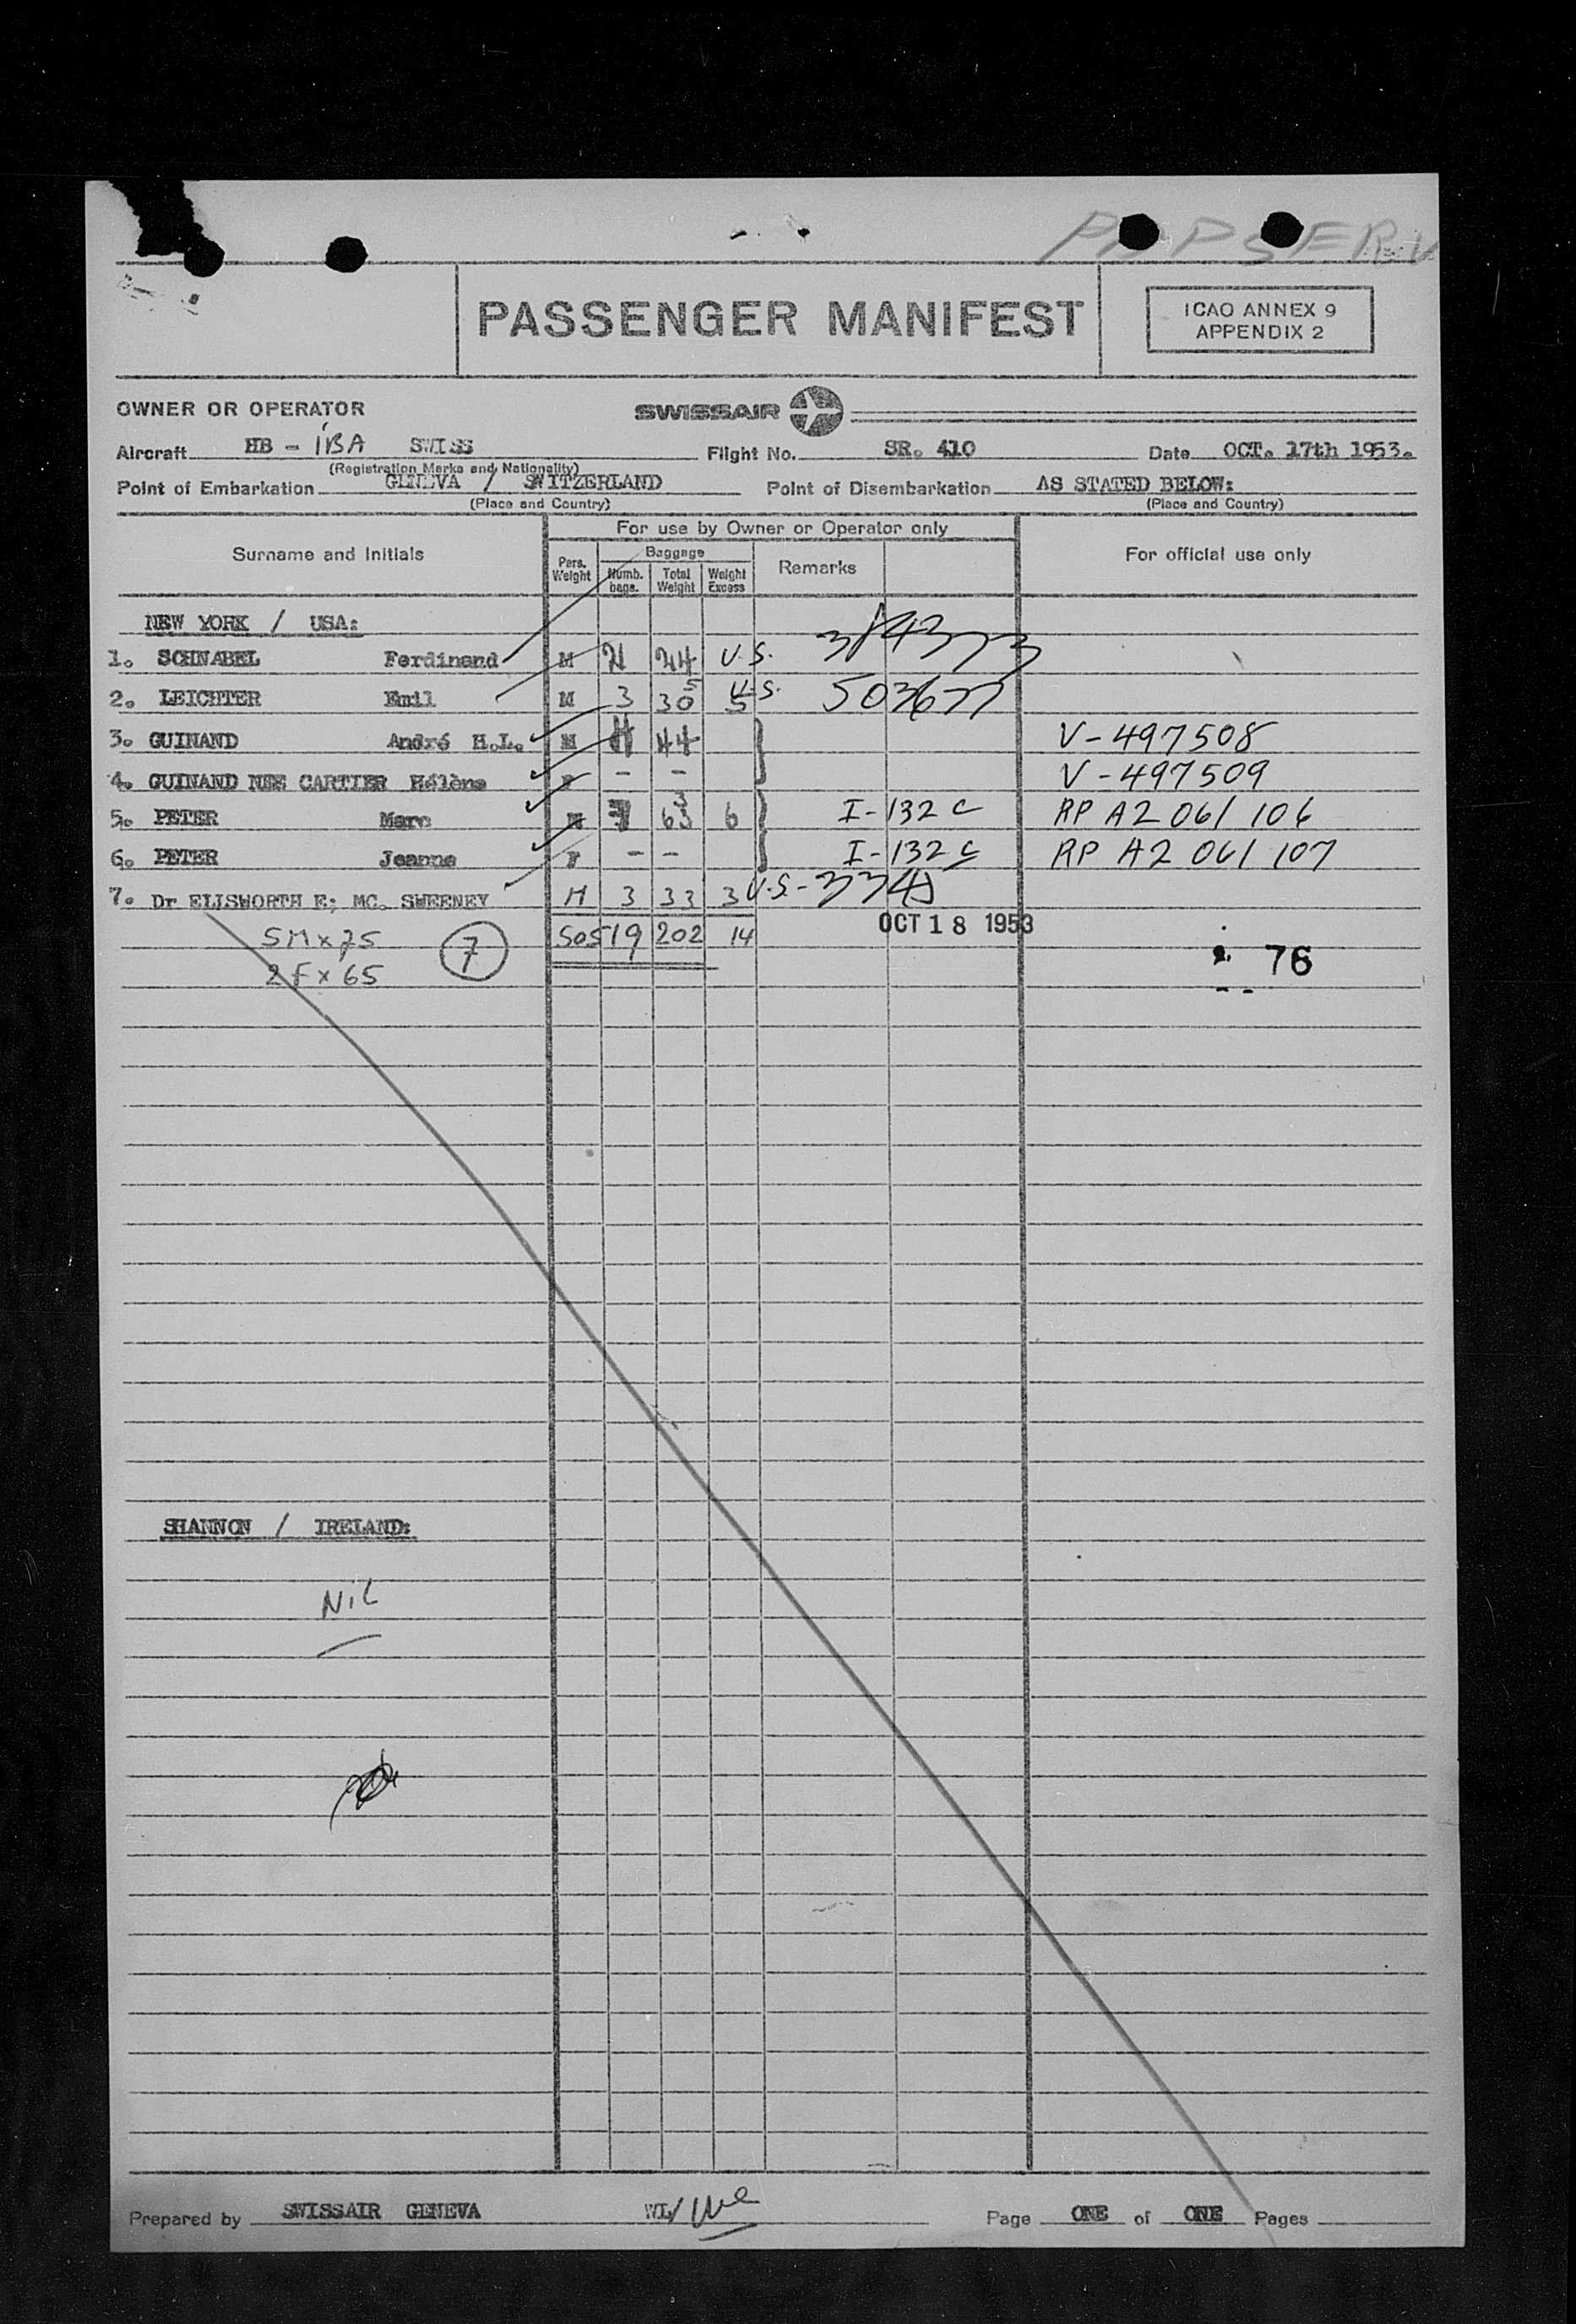 PASSENGER MANIFEST
ICAO ANNEX 9
APPENDIX 2
OWNER OR OPERATOR SWISSAIR
Aircraft HB - IBA SWISS Flight No. SR. 410 Date OCT. 17th 1953.
(Registration Marks and Nationality)
Point of Embarkation GENEVA / SWITZERLAND Point of Disembarkation AS STATED BELOW:
(Place and Country) (Place and Country)
For use by Owner or Operator only
Surname and Initials Pers. Weight Baggage Numb. bags. Total Weight Weight Excess Remarks For official use only
NEW YORK / USA:
1. SCHNABEL Ferdinand M 24 U.S.
2. LEICHTER Emil M 3 30 5 U.S.
3. GUINAND André H.L. M 4 44 V-497508
4. GUINAND NEE CARTIER Hélène F - - V-497509
5. PETER Marc M 7 63 6 I-132 C RP A2 061 106
6. PETER Jeanne F - - I-132 C RP A2 061 107
7. Dr ELISWORTH E; MC. SWEENEY M 3 33 3 U.S.
OCT 18 1953
5M x 75 7 505 19 202 14
2F x 65
76
SHANNON / IRELAND:
NIL
Prepared by SWISSAIR GENEVA WL/ Page ONE of ONE Pages